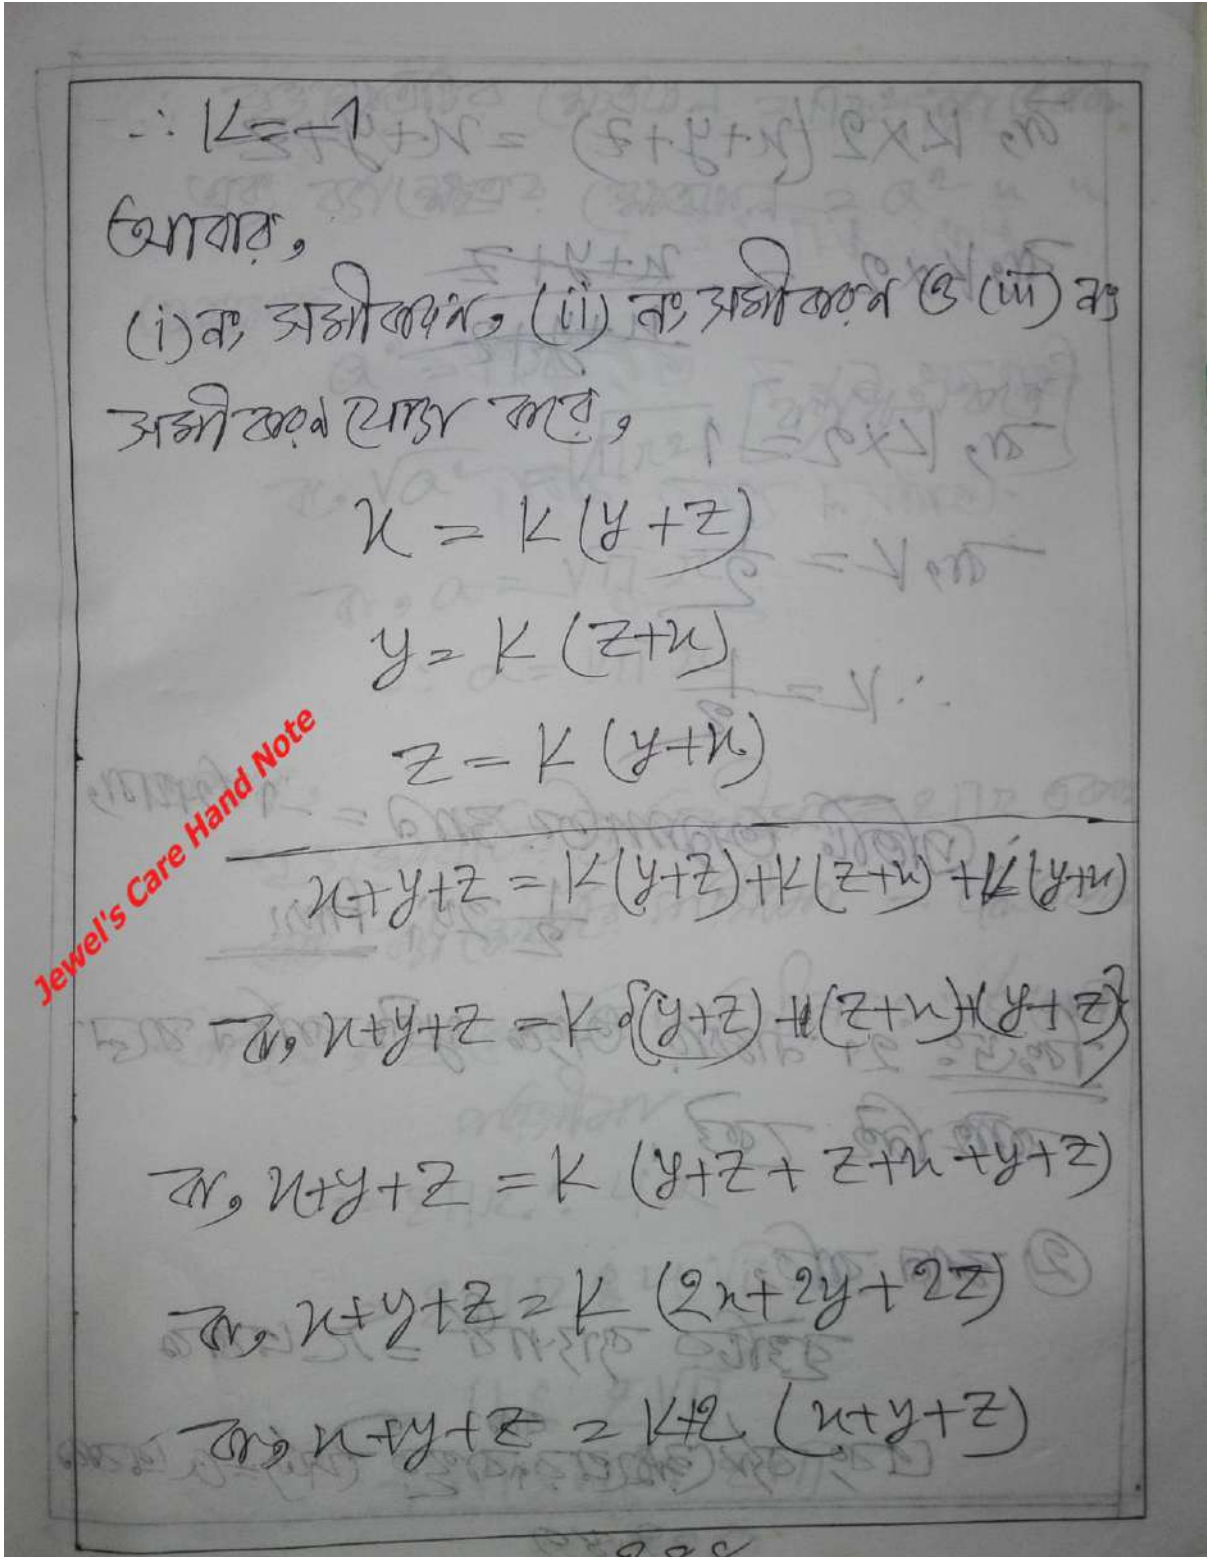 ∴ K = -1
আবার,
(i) নং সমীকরণ, (ii) নং সমীকরণ ও (iii) নং
সমীকরণ যোগ করে,
x = K (y+z)
y = K (z+x)
z = K (y+x)
x+y+z = K(y+z)+K(z+x)+K(y+x)
বা, x+y+z = K {(y+z)+(z+x)+(y+z)}
বা, x+y+z = K (y+z+z+x+y+z)
বা, x+y+z = K (2x+2y+2z)
বা, x+y+z = K+2 (x+y+z)
Jewel's Care Hand Note